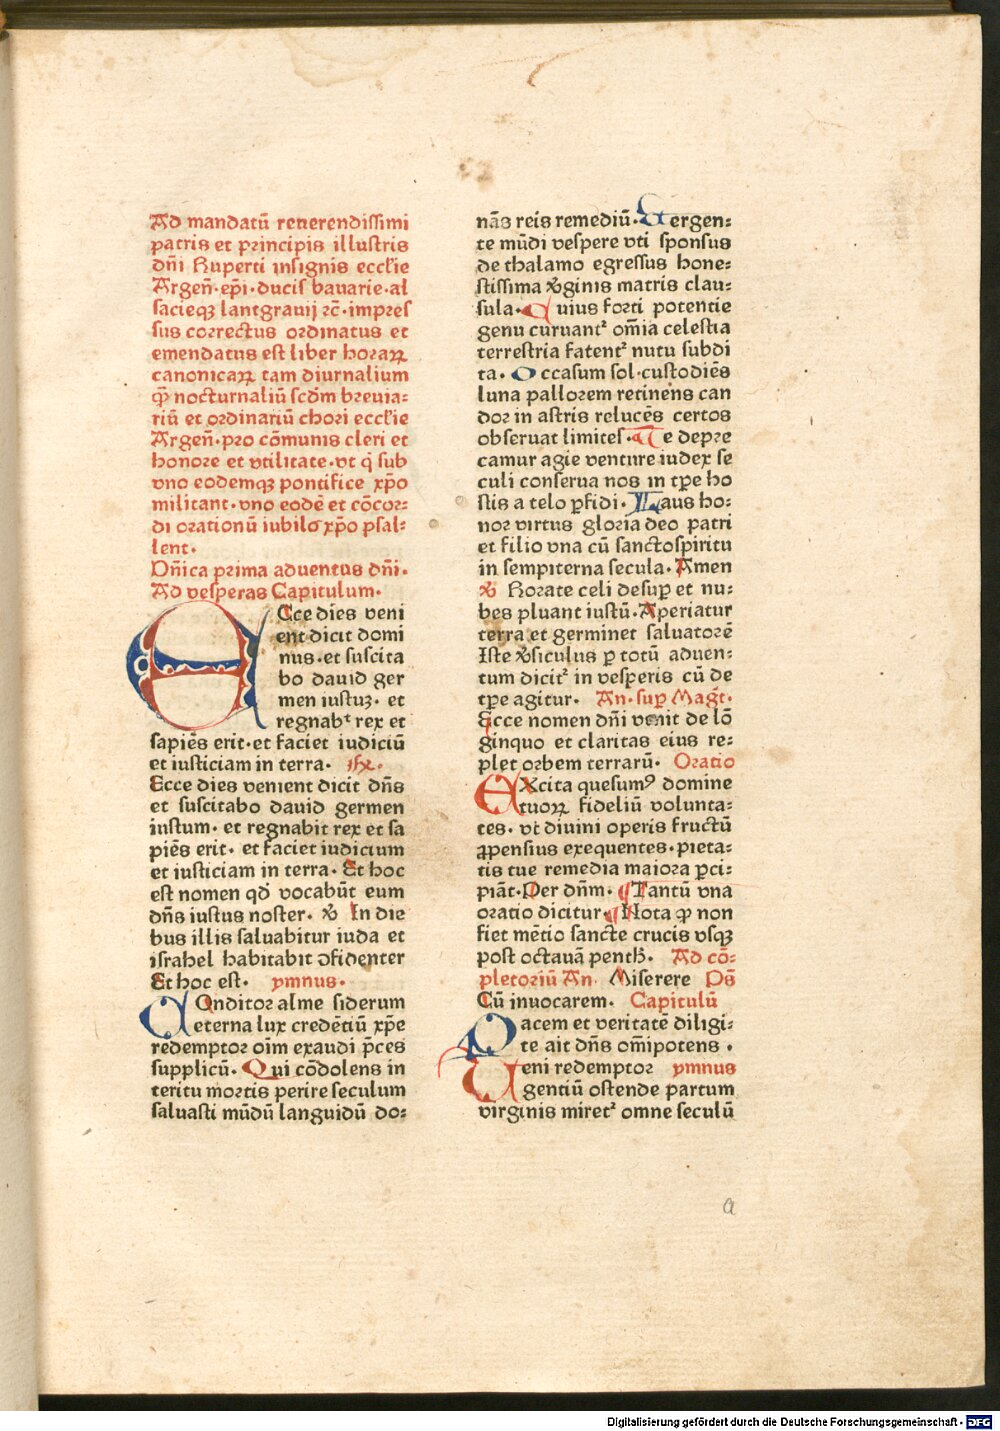 Ad mandatū reuerendissimi
patris et principis illustris
dñi Ruperti insignis eccłie
Argeñ·ep̄i·ducis bauarie·al
sacieqꝫ lantgrauij ⁊c̄·impres
sus correctus ordinatus et
emendatus est liber horaꝝ
canonicaꝝ tam diurnalium
ꝙ̄ nocturnaliū scd̄m breuia⸗
riū et ordinariū chori eccłie
Argeñ·pro cōmunis cleri et
honore et vtilitate·vt q̇ sub
vno eodemqꝫ pontifice xp̄o
militant·vno eodē et cōcor⸗
di orationū iubilo xp̄o psal⸗
lent·
Dñica prima aduentus dñi·
Ad vesperas Capitulum·
ECce dies veni
ent dicit domi
nus·et suscita
bo dauid ger
men iustuꝫ· et
regnabᵗ rex et
sapiēs erit·et faciet iudiciū
et iusticiam in terra· ꝶ·
Ecce dies venient dicit dn̄s
et suscitabo dauid germen
iustum· et regnabit rex et sa
piēs erit· et faciet iudicium
et iusticiam in terra· Et hoc
est nomen qd̄ vocabūt eum
dn̄s iustus noster· ꝟ In die
bus illis saluabitur iuda et
israhel habitabit ↄfidenter
Et hoc est· ymnus·
COnditor alme siderum
eterna lux credētiū xp̄e
redemptor oīm exaudi p̄ces
supplicū· Qui cōdolens in
teritu mortis perire seculum
saluasti mūdū languidū do⸗
nās reis remediū·Uergen⸗
te mūdi vespere vti sponsus
de thalamo egressus hone⸗
stissima ꝟginis matris clau⸗
sula· Cuius forti potentie
genu curuantᷣ om̄ia celestia
terrestria fatentᷣ nutu subdi
ta· Occasum sol·custodiēs
luna pallorem retinēns can
dor in astris relucēs certos
obseruat limites·Te depre
camur agie venture iudex se
culi conserua nos in tp̄e ho
stis a telo ꝑfidi· Laus ho⸗
nor virtus gloria deo patri
et filio vna cū sanctospiritu
in sempiterna secula· Amen
ꝟ Rorate celi desuꝑ et nu⸗
bes pluant iustū·Aperiatur
terra et germinet saluatorē
Iste ꝟsiculus ꝑ totū aduen⸗
tum dicitᷣ in vesperis cū de
tp̄e agitur· An·suꝑ Magt̄·
Ecce nomen dñi venit de lō
ginquo et claritas eius re⸗
plet orbem terrarū· Oratio
EXcita quesumꝰ domine
tuoꝝ fideliū volunta⸗
tes· vt diuini operis fructū
ꝓpensius exequentes·pieta⸗
tis tue remedia maiora ꝑci⸗
piāt·Per dn̄m· ¶Tantū vna
oratio dicitur·¶Nota ꝙ non
fiet mētio sancte crucis vsqꝫ
post octauā penth̄· Ad cō⸗
pletoriū An· Miserere Ps̄
Cū inuocarem· Capitulū
PAcem et veritatē diligi⸗
te ait dn̄s om̄ipotens ·
Ueni redemptor ymnus
gentiū ostende partum
virginis miretᷣ omne seculū
a
Digitalisierung gefördert durch die Deutsche Forschungsgemeinschaft - DFG